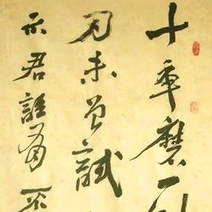 十年磨一
刃未曾試
示君誰為不